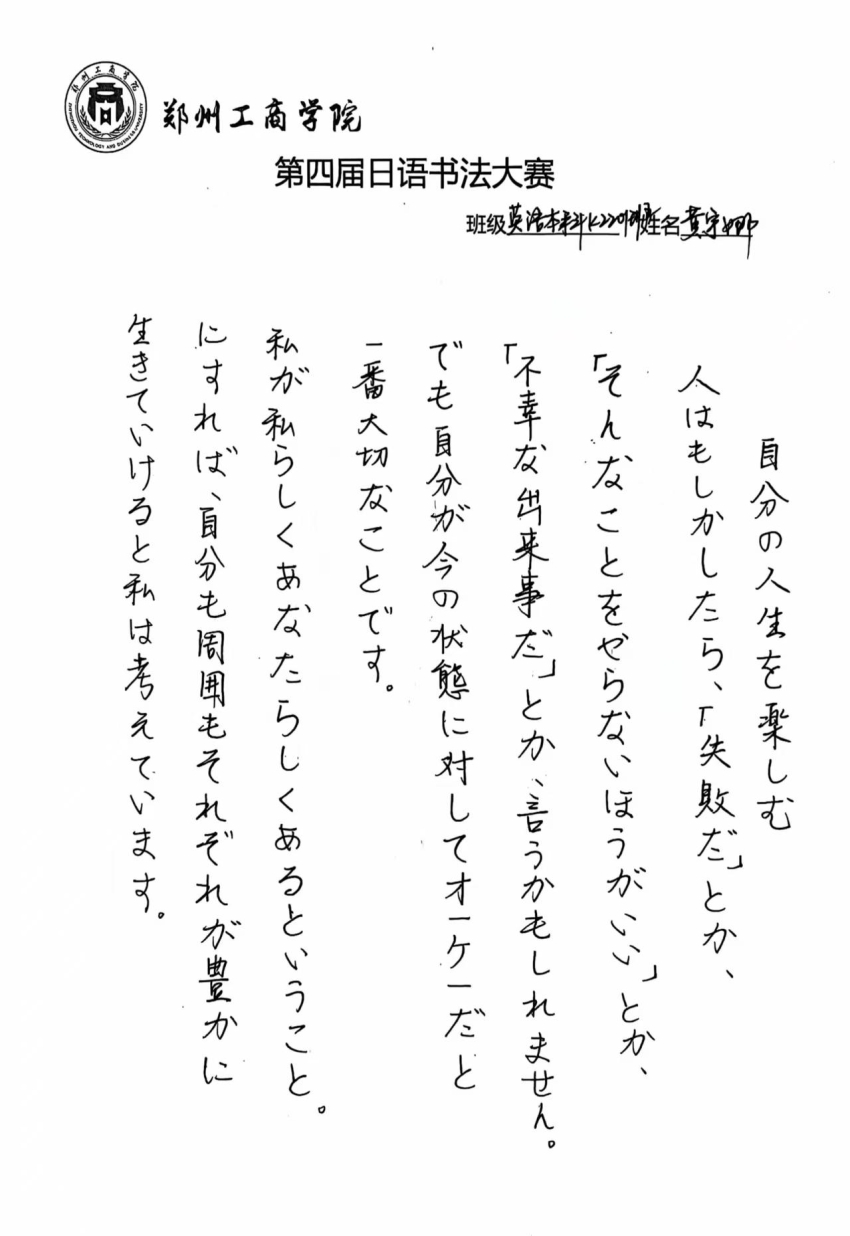 郑州工商学院
第四届日语书法大赛
班级英语本科K2201班姓名黄宗娜
自分の人生を楽しむ
人はもしかしたら、「失敗だ」とか、
「そんなことをぜらないほうがいい」とか、
「不幸な出来事だ」とか、言うかもしれません。
でも自分が今の状態に対してオーケーだと
一番大切なことです。
私が私らしくあなたらしくあるということ。
にすれば、自分も周囲もそれぞれが豊かに
生きていけると私は考えています。